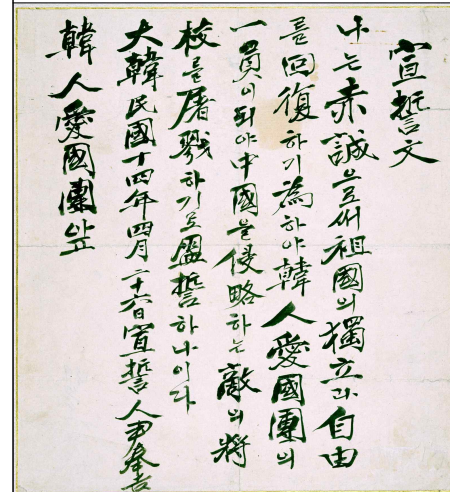 宣誓文
나는 赤誠으로써 祖國의 獨立과 自由
를 回復하기 爲하야 韓人愛國團의
一員이 되야 中國을 侵略하는 敵의 將
校를 屠戮하기로 盟誓하나이다
大韓民國十四年四月二十六日 宣誓人 尹奉吉
韓人愛國團 앞